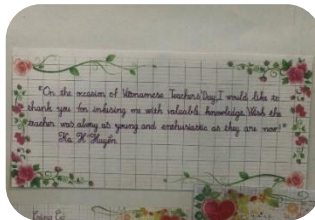 "On the occasion of Vietnamese Teachers' Day, I would like to
thank you for infusing me with valuable knowledge. Wish the
teacher was alway as young and enthusiastic as they are now!"
Ka H'